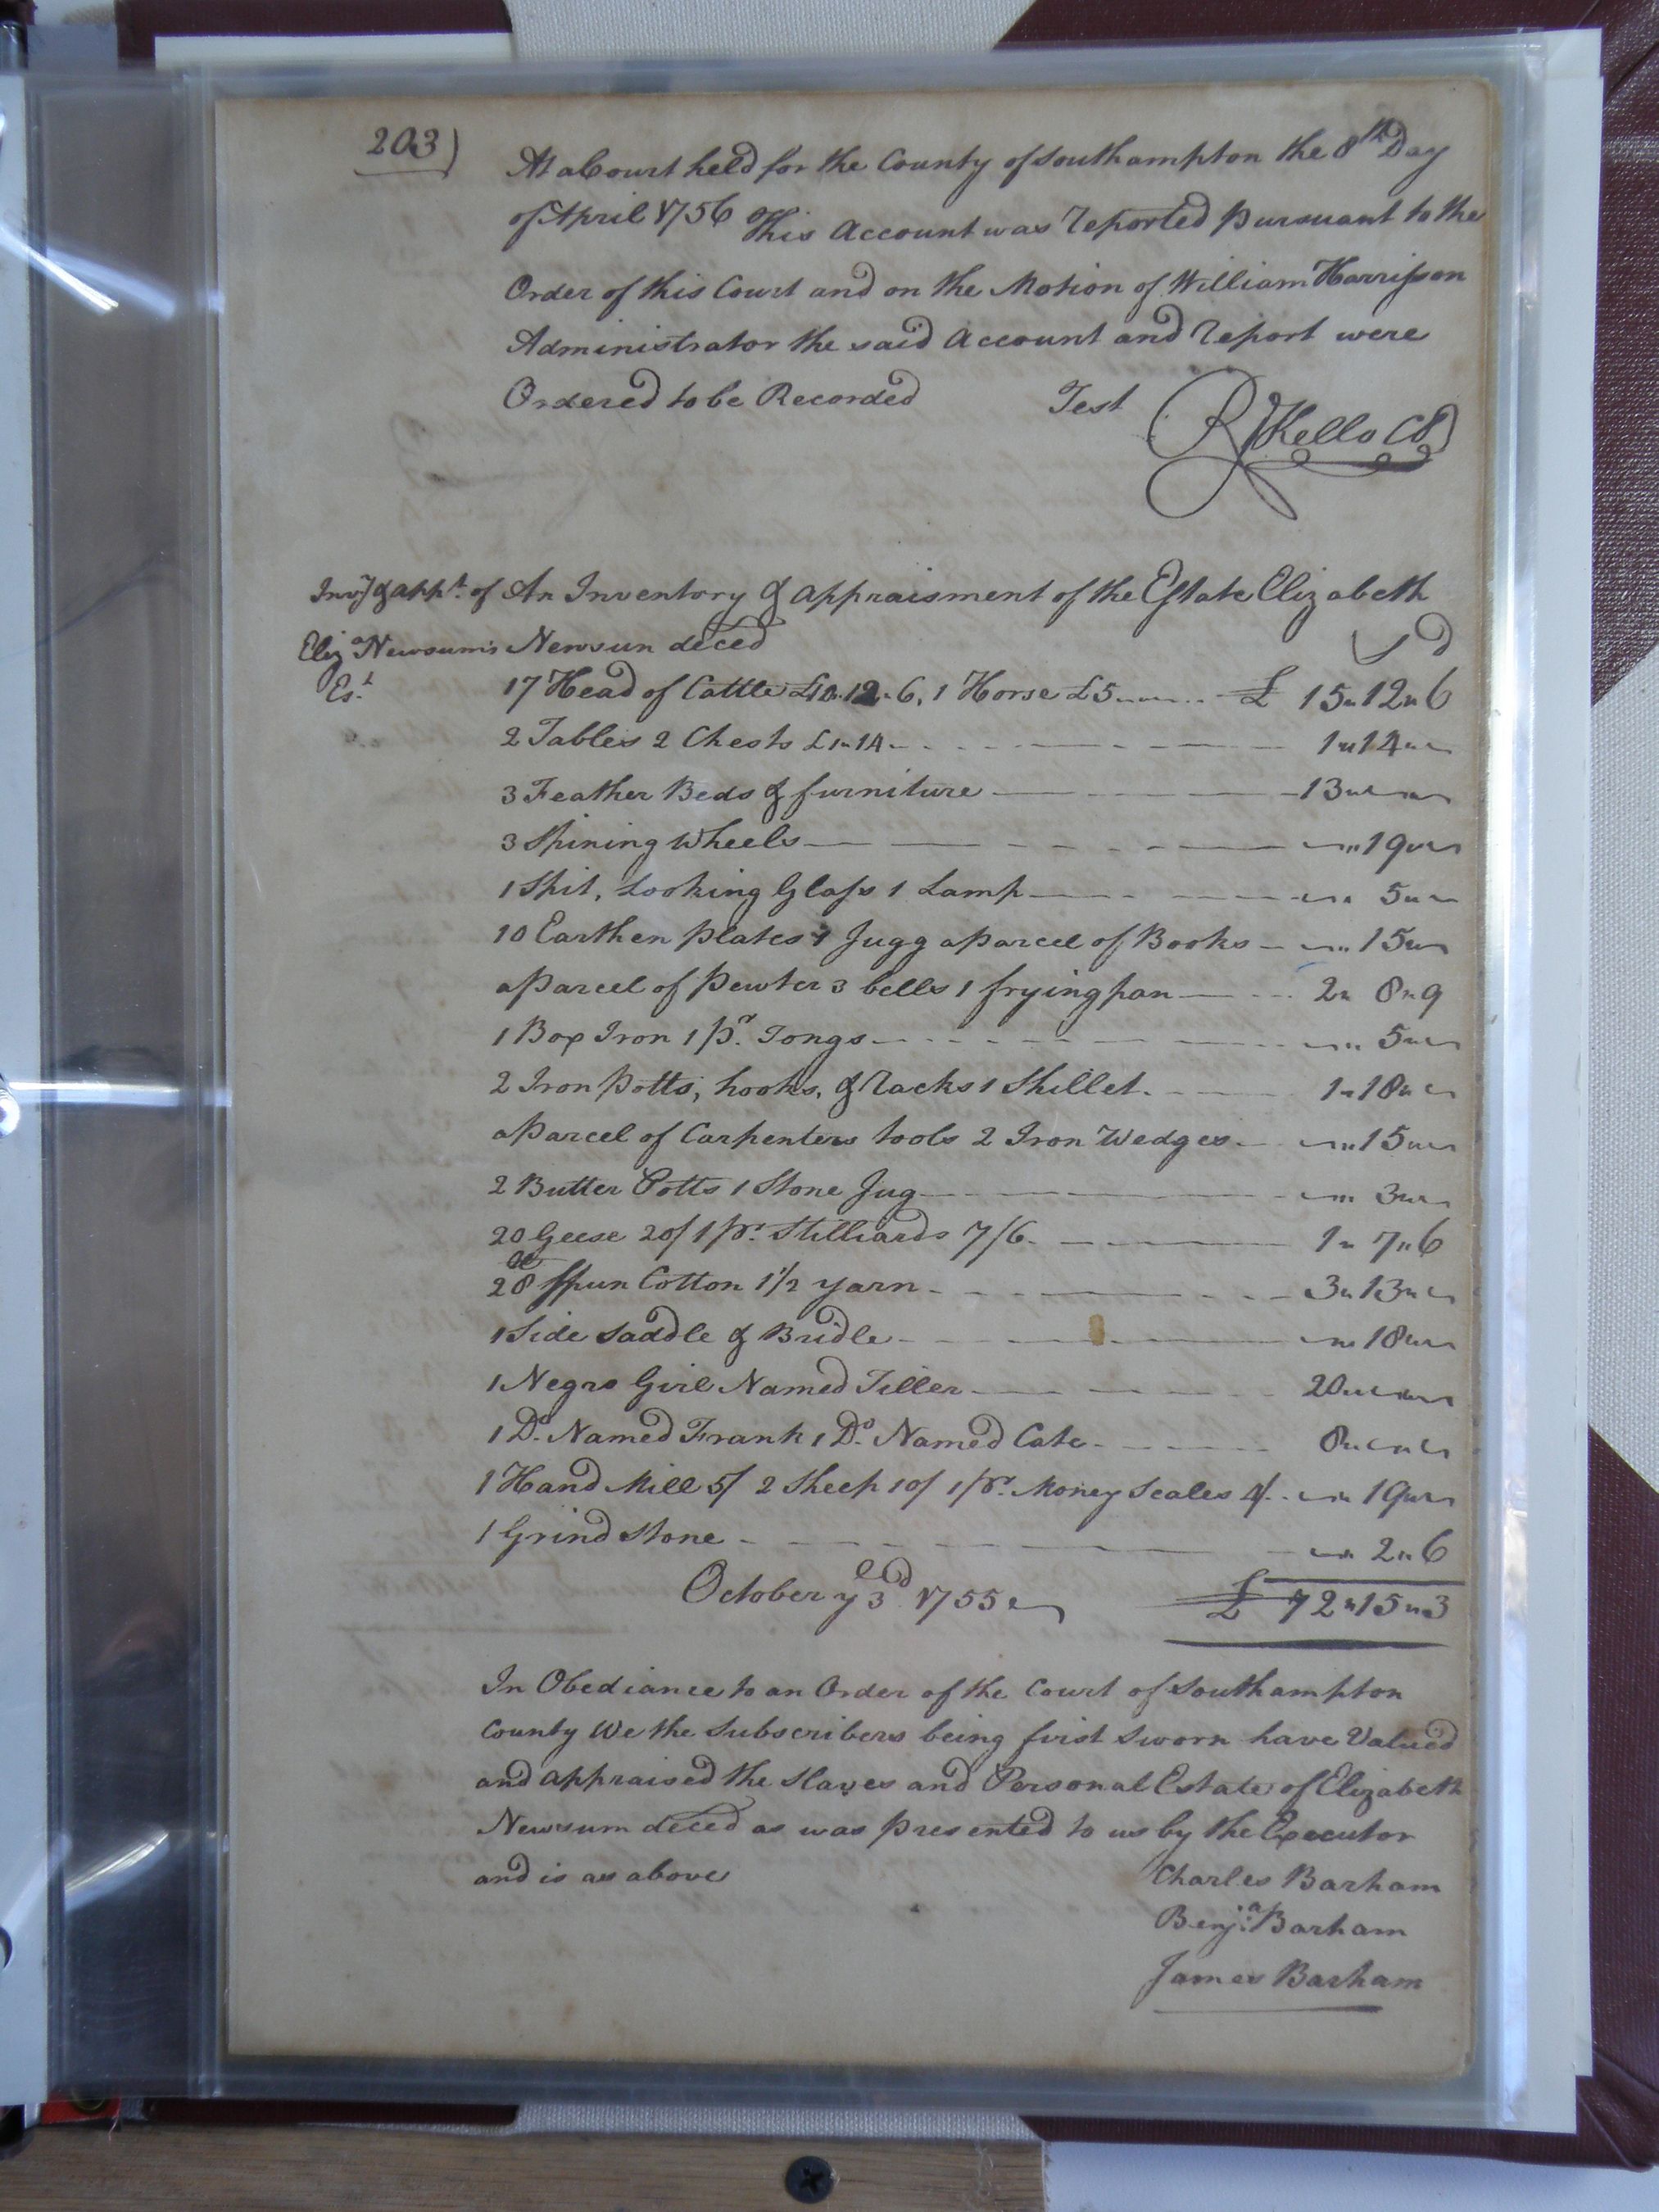 203)
At a Court held for the County of Southampton the 8th Day
of April 1756 This Account was Reported Pursuant to the
Order of this Court and on the Motion of William Harrisson
Administrator the said Account and Report were
Ordered to be Recorded Test
RKello CC
Invy & appt. of An Inventory & appraisment of the Estate Elizabeth
Eliza Newsum's Newsun deced S D
Est. 17 Head of Cattle £10..12..6, 1 Horse £5 £ 15"12"6
2 Tables 2 Chests £1"14 1"14"
3 Feather Beds & furniture 13"
3 Spining Wheels "19"
1 Spit, Looking Glass 1 Lamp " 5"
10 Earthen Plates 1 Jugg a Parcel of Books "15"
a Parcel of Pewter 3 bells 1 frying pan 2" 8"9
1 Box Iron 1 Pr. Tongs " 5"
2 Iron Potts, hooks, & Racks 1 Skillet 1"18"
a Parcel of Carpenters tools 2 Iron Wedges "15"
2 Butter Potts 1 Stone Jug " 3"
20 Geese 20/ 1 pr. Stilliards 7/6 1" 7"6
28 Spun Cotton 1 1/2 yarn 3"13"
1 Side Saddle & Bridle "18"
1 Negro Girl Named Tiller 20"
1 Do. Named Frank 1 Do. Named Cate 8"
1 Hand Mill 5/ 2 Sheep 10/ 1 pr. Money Scales 4/ "19"
1 Grind Stone " 2"6
October ye 3d 1755 £ 72"15"3
In Obediance to an Order of the Court of Southampton
County We the Subscribers being first Sworn have Valued
and appraised the Slaves and Personal Estate of Elizabeth
Newsum deced as was presented to us by the Executor
and is as above Charles Barham
Benja. Barham
James Barham